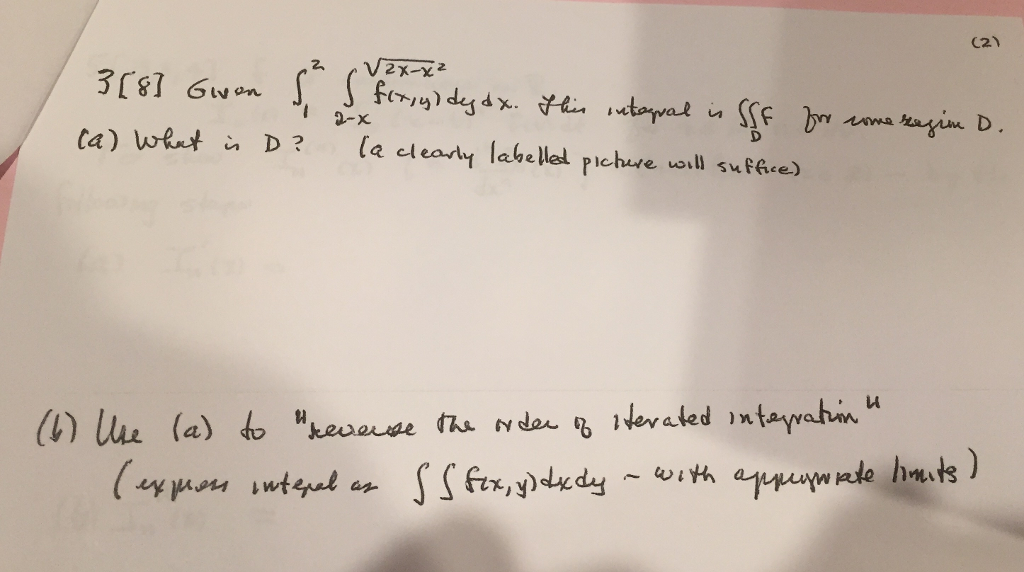 (2)
3[8] Given ∫₁² ∫_{2-x}^{√2x-x²} f(x,y) dy dx. This integral is ∬_D f for some region D.
(a) What is D? (a clearly labelled picture will suffice)
(b) Use (a) to "reverse the order of iterated integration"
(express integral as ∫∫ f(x,y) dx dy - with appropriate limits)